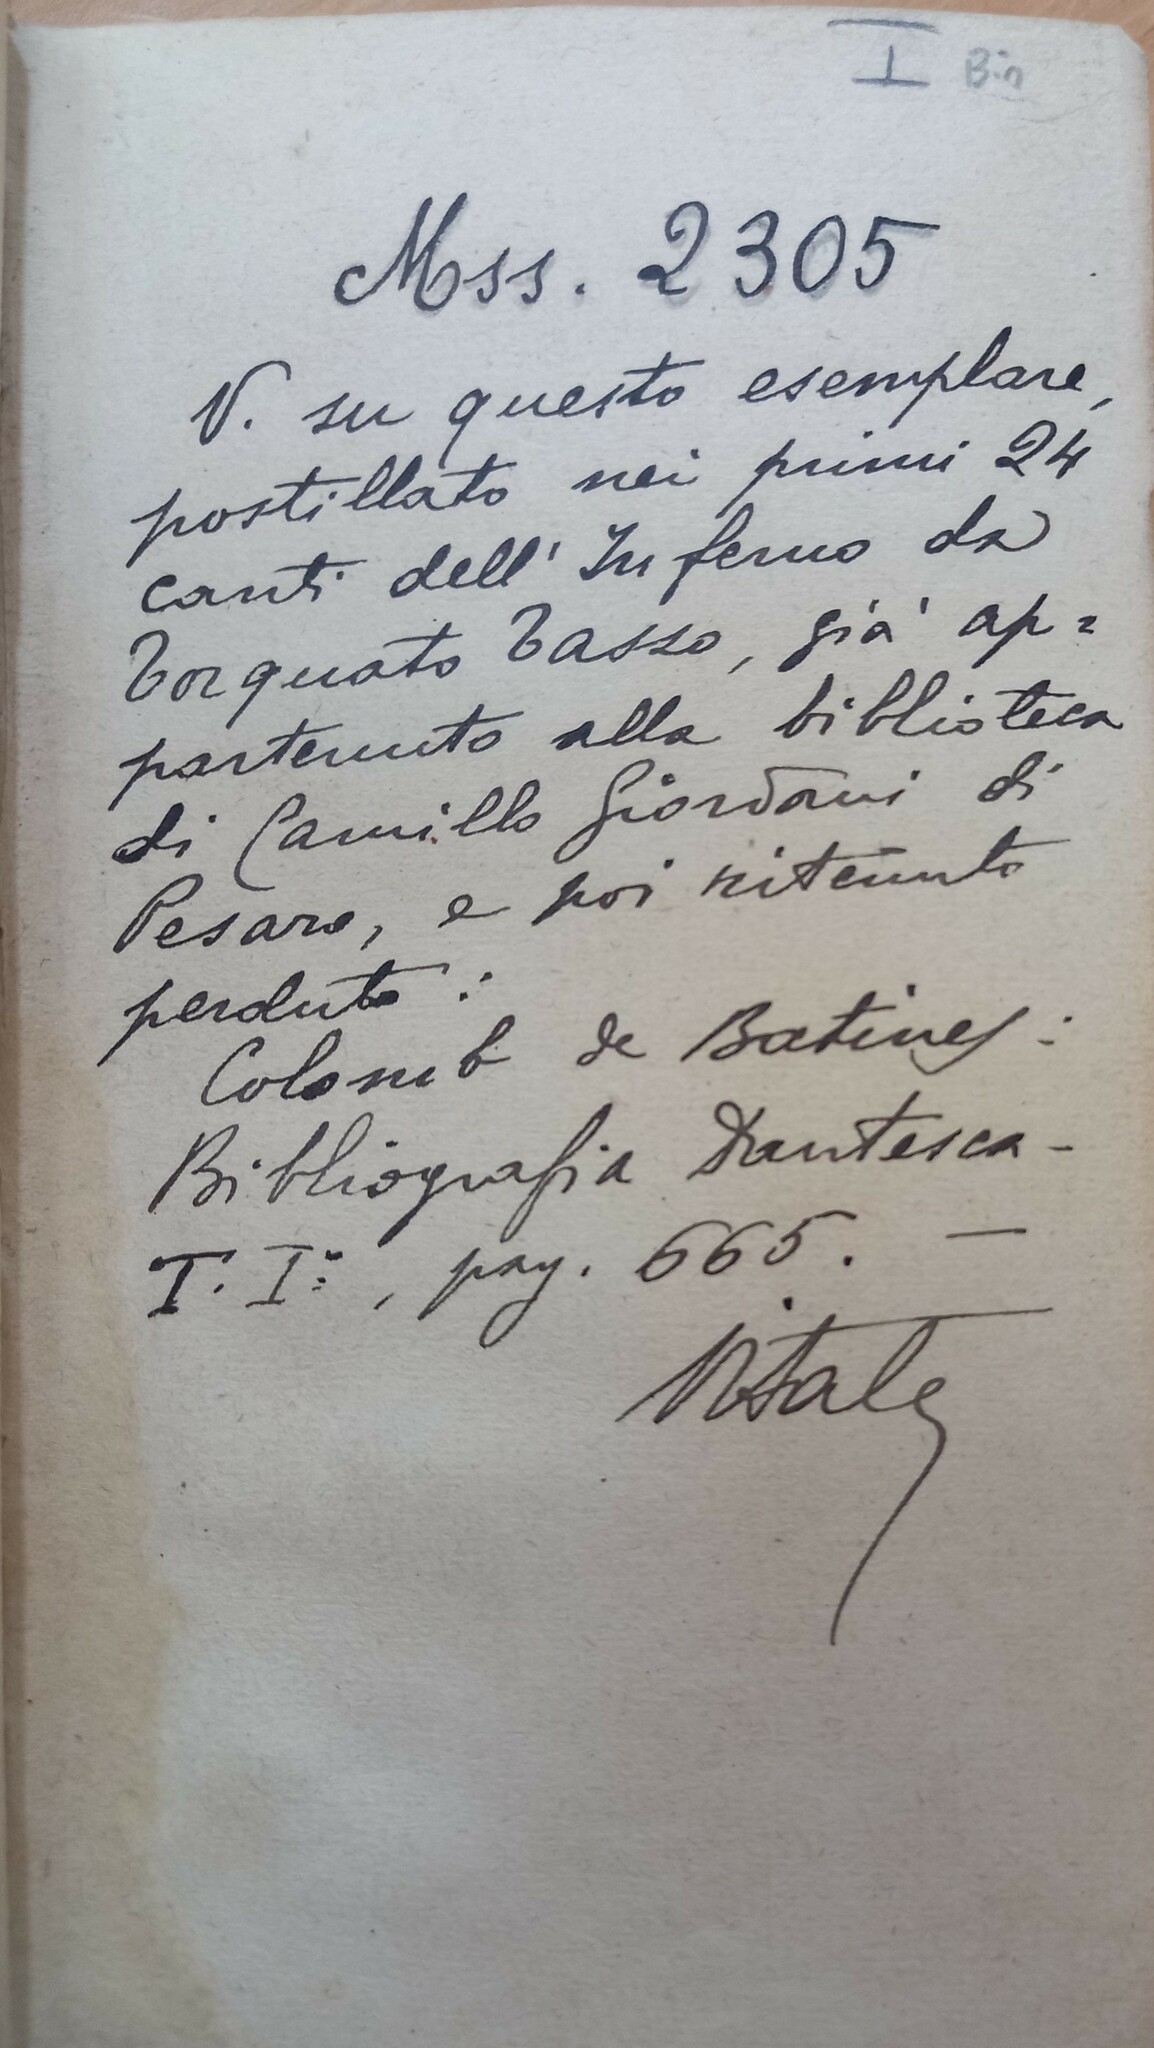 I Bis
Mss. 2305
V. su questo esemplare,
postillato nei primi 24
canti dell' Inferno da
Torquato Tasso, già ap=
partenuto alla biblioteca
di Camillo Giordani di
Pesaro, e poi ritenuto
perduto:
Colomb de Batines:
Bibliografia Dantesca -
T. Iº, pag. 665. —
Vitale